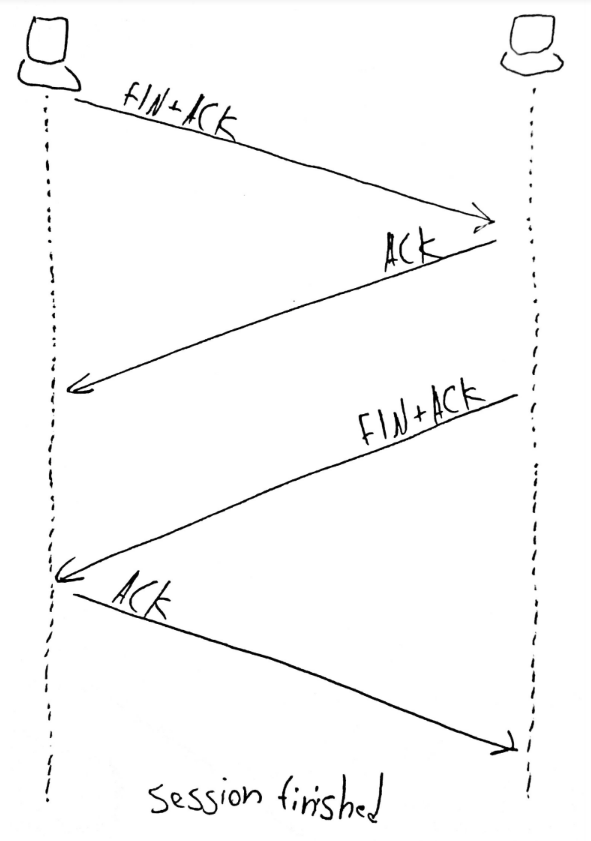 FIN+ACK
ACK
FIN+ACK
ACK
session finished